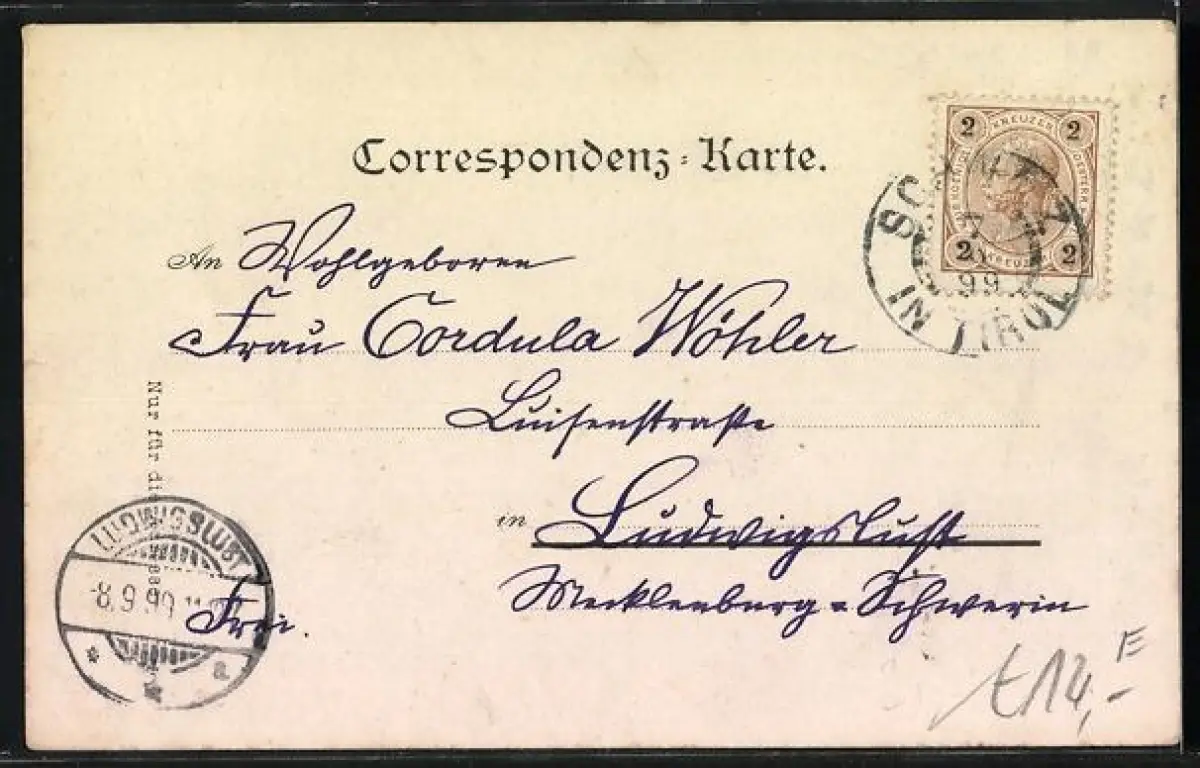 Correspondenz-Karte.
2 KREUZER 2
2 KREUZER 2
SCHWAZ
99
IN TIROL
An Wohlgeboren
Frau Cordula Wöhler
Luisenstraße
in Ludwigslust
Mecklenburg-Schwerin
Nur für die
LUDWIGSLUST
8.9.99
Frei.